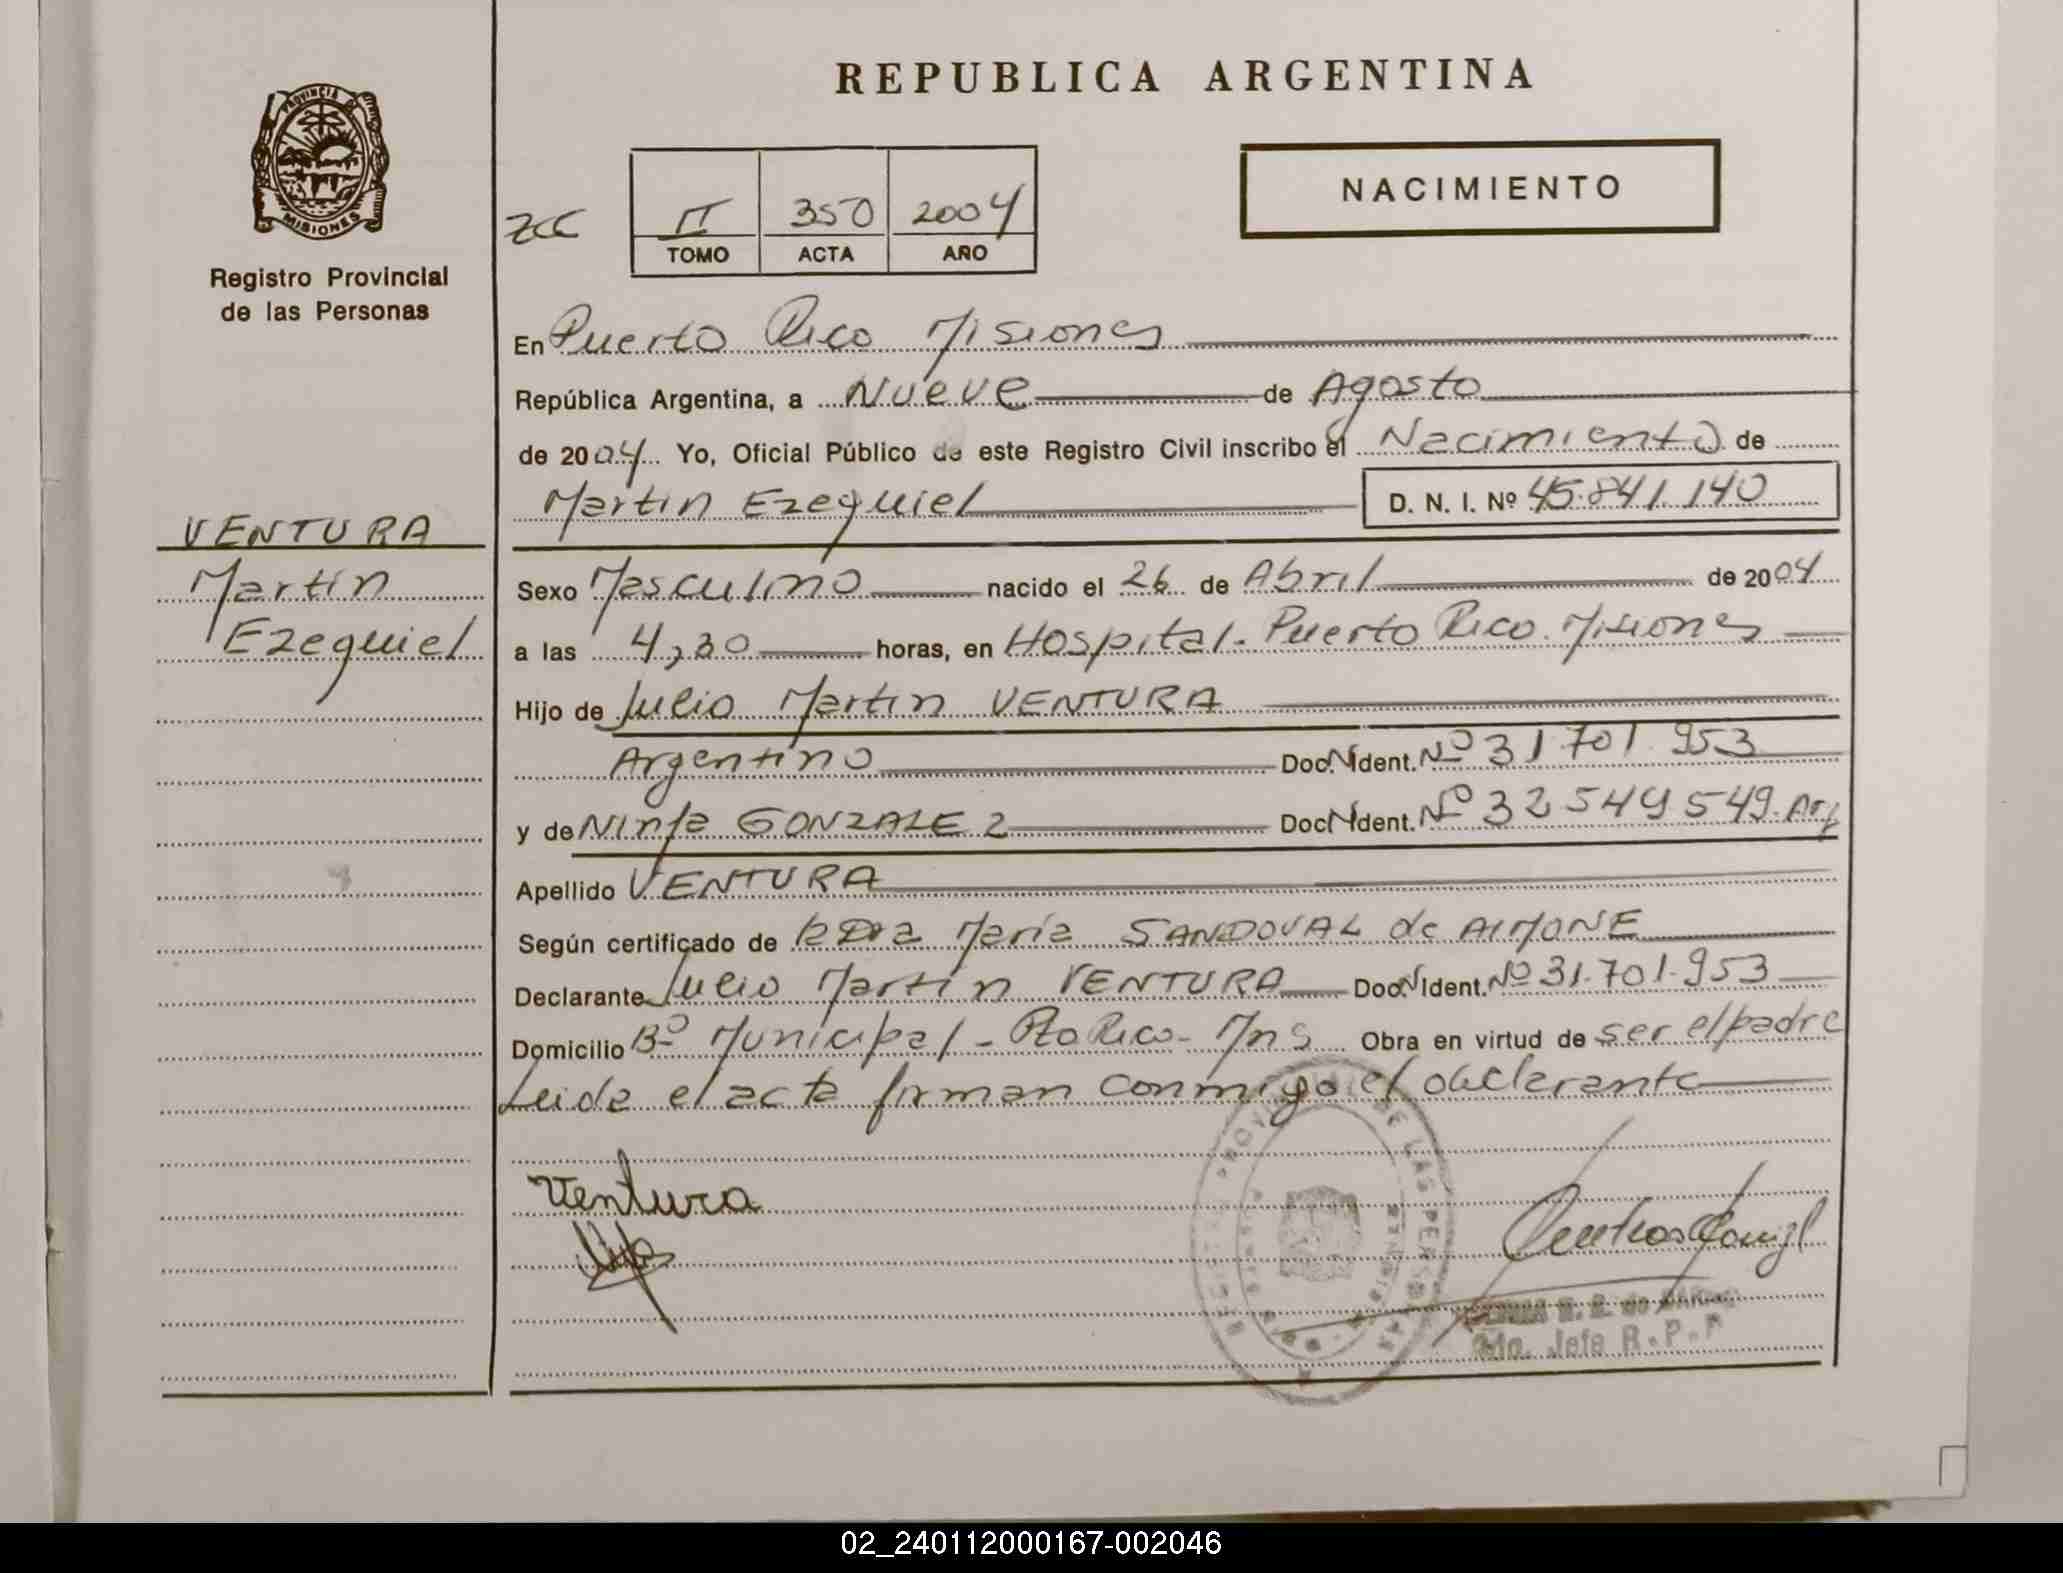 REPUBLICA ARGENTINA
PROVINCIA DE
MISIONES
Registro Provincial
de las Personas
NACIMIENTO
II 350 2004
TOMO ACTA AÑO
En Puerto Rico Misiones
República Argentina, a Nueve de Agosto
de 2004 Yo, Oficial Público de este Registro Civil inscribo el Nacimiento de
Martin Ezequiel D. N. I. Nº 45.841.140
VENTURA
Martin
Ezequiel
Sexo Masculino nacido el 26 de Abril de 2004
a las 4,30 horas, en Hospital - Puerto Rico. Misiones
Hijo de Julio Martin VENTURA
Argentino Doc. Ident. Nº 31.701.953
y de Ninfa GONZALEZ Doc. Ident. Nº 32549549. Arg
Apellido VENTURA
Según certificado de la Dra Maria SANDOVAL de AIMONE
Declarante Julio Martin VENTURA Doc. Ident. Nº 31.701.953
Domicilio Bº Municipal - Pto Rico - Mns Obra en virtud de ser el padre
Leida el acta firman conmigo el declarante
Ventura
de MISIONES
Jefe R.P.P
02_240112000167-002046